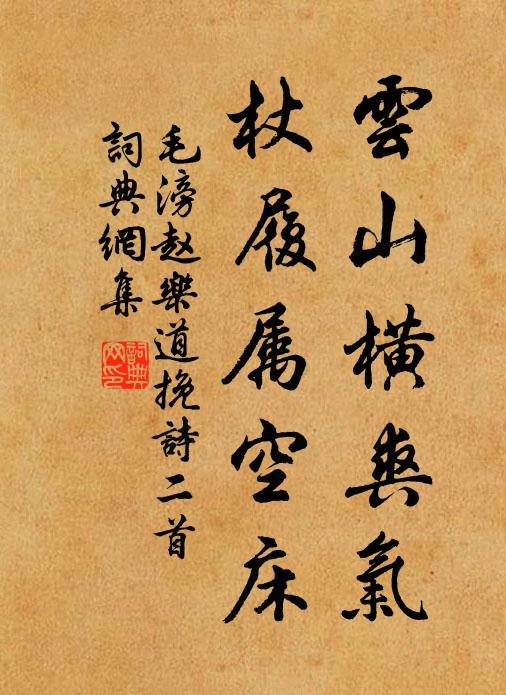 雲山橫爽氣
杖履属空床
毛滂赵樂道挽詩二首
詞典網集
詞典網印